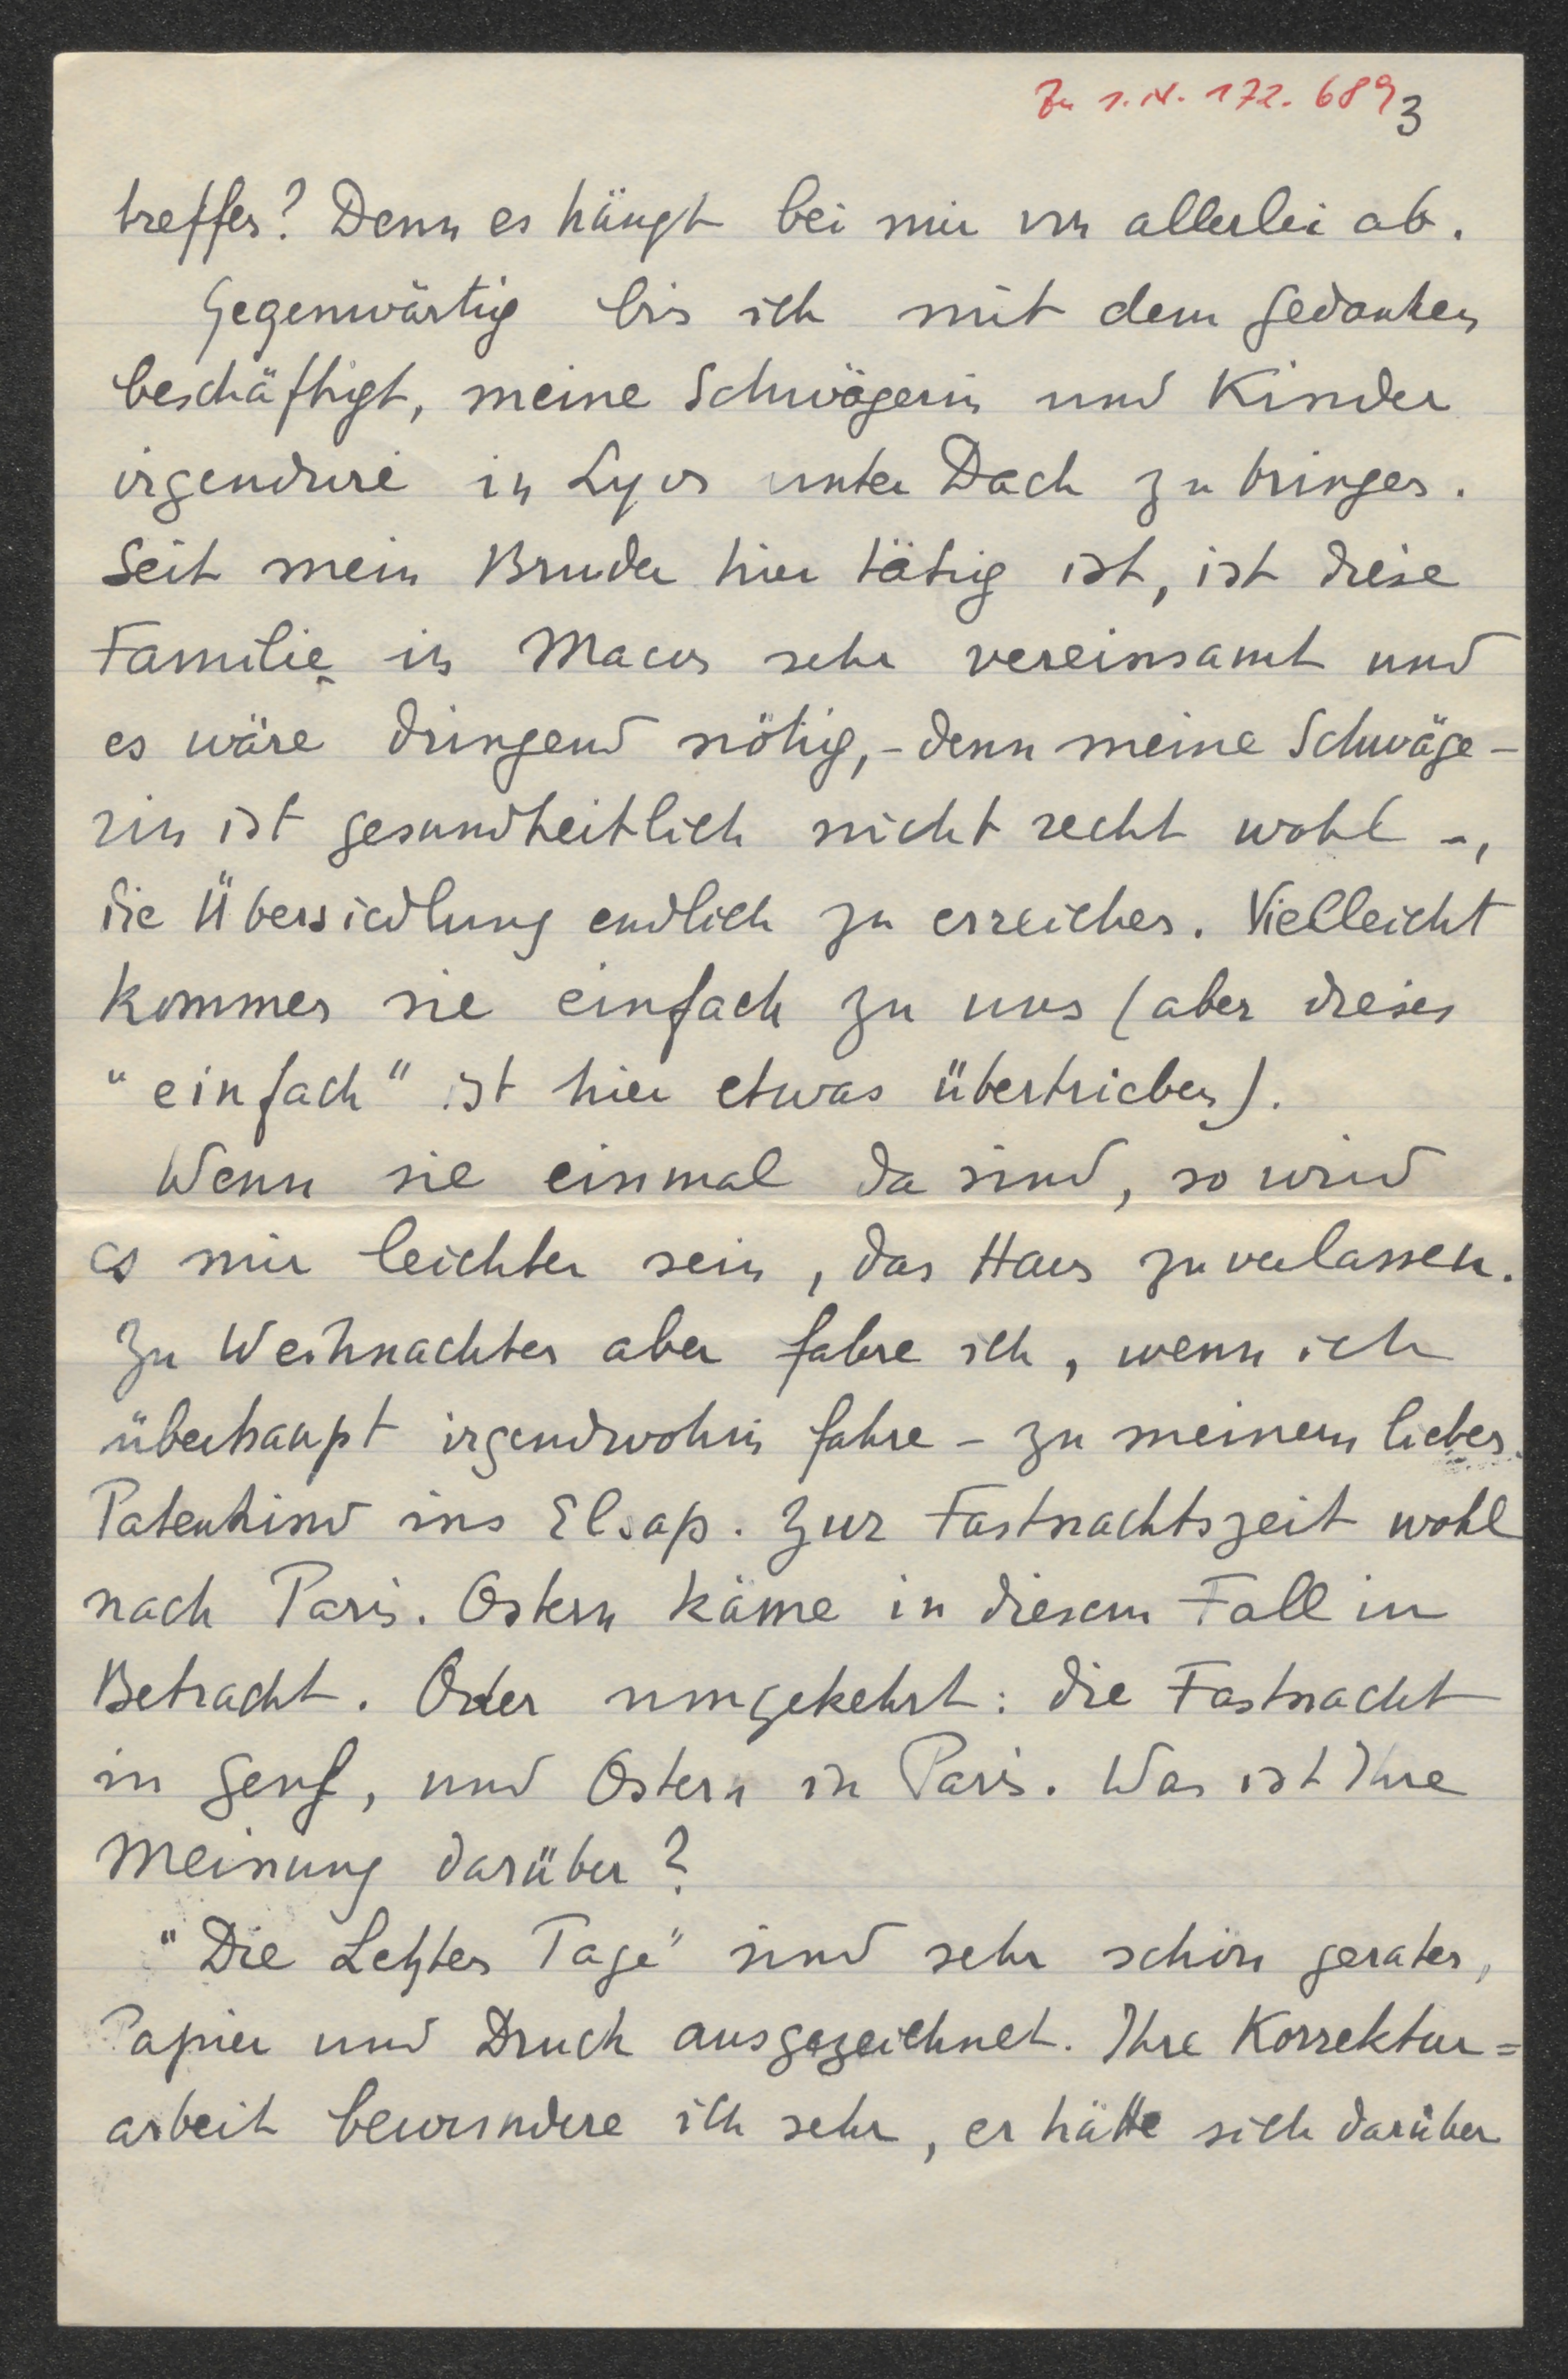 Zu I.N. 172.689
3
treffen? Denn es hängt bei mir von allerlei ab.
Gegenwärtig bin ich mit dem Gedanken
beschäftigt, meine Schwägerin und Kinder
irgendwie in Lyon unter Dach zu bringen.
Seit mein Bruder hier tätig ist, ist diese
Familie in Macon sehr vereinsamt und
es wäre dringend nötig, - denn meine Schwäge-
rin ist gesundheitlich nicht recht wohl -,
die Übersiedlung endlich zu erreichen. Vielleicht
kommen sie einfach zu uns (aber dieses
"einfach" ist hier etwas übertrieben).
Wenn sie einmal da sind, so wird
es mir leichter sein, das Haus zu verlassen.
Zu Weihnachten aber fahre ich, wenn ich
überhaupt irgendwohin fahre - zu meinem lieben
Patenkind ins Elsaß. Zur Fastnachtszeit wohl
nach Paris. Ostern käme in diesem Fall in
Betracht. Oder umgekehrt: die Fastnacht
in Genf, und Ostern in Paris. Was ist Ihre
Meinung darüber?
"Die Letzten Tage" sind sehr schön geraten,
Papier und Druck ausgezeichnet. Ihre Korrektur=
arbeit bewundere ich sehr, er hätte sich darüber